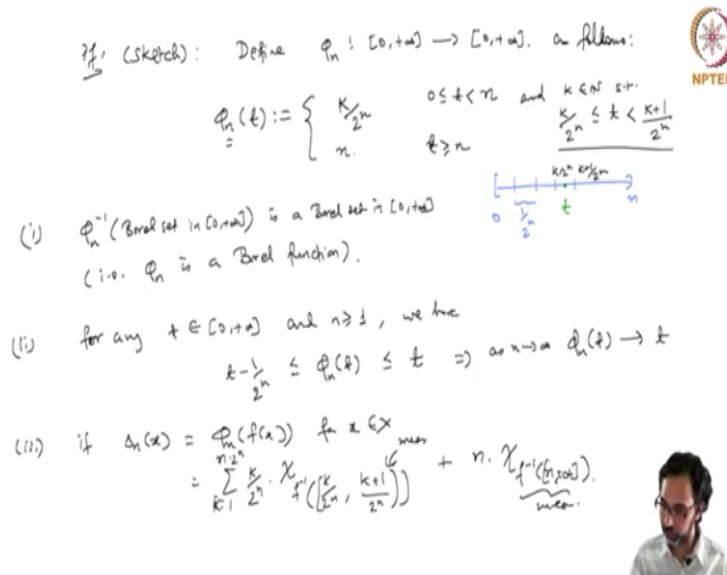 Pf: (sketch): Define φ_n : [0,+∞] → [0,+∞]. as follows:
NPTEL
φ_n(t) := { k/2^n 0 ≤ t < n and k ∈ ℕ s.t. k/2^n ≤ t < (k+1)/2^n
n. t ≥ n
k/2^n (k+1)/2^n
0 1/2^n t n
(i) φ_n^{-1}(Borel set in [0,+∞]) is a Borel set in [0,+∞]
(i.e. φ_n is a Borel function).
(ii) for any t ∈ [0,+∞] and n ≥ 1, we have
t - 1/2^n ≤ φ_n(t) ≤ t ⇒ as n→∞ φ_n(t) → t
(iii) if s_n(x) = φ_n(f(x)) for x ∈ X
meas
= Σ_{k=1}^{n·2^n} k/2^n · χ_{f^{-1}([k/2^n, (k+1)/2^n))} + n · χ_{f^{-1}([n,+∞])}.
meas.